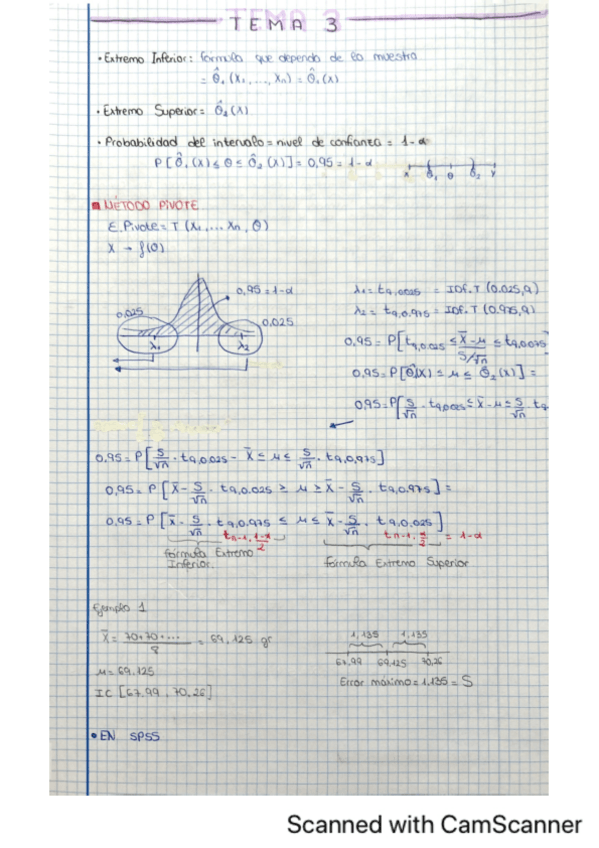 TEMA 3
• Extremo Inferior: fórmula que depende de la muestra
= θ̂₁ (X₁, ..., Xn) = θ̂₁(X)
• Extremo Superior = θ̂₂(X)
• Probabilidad del intervalo = nivel de confianza = 1-α
P[θ̂₁(X) ≤ θ ≤ θ̂₂(X)] = 0,95 = 1-α
θ̂₁ θ θ̂₂
MÉTODO PIVOTE
E. Pivote = T (X₁, ... Xn, θ)
X → f(θ)
0,95 = 1-α
0,025
0,025
λ₁ λ₂
λ₁ = t9,0.025 = IDF.T (0.025,9)
λ₂ = t9,0.975 = IDF.T (0.975,9)
0,95 = P[t9,0.025 ≤ (X̄-μ)/(S/√n) ≤ t9,0.975
0,95 = P[θ̂₁(X) ≤ μ ≤ θ̂₂(X)] =
0,95 = P[S/√n · t9,0.025 ≤ X̄-μ ≤ S/√n · t9
0,95 = P[S/√n · t9,0.025 - X̄ ≤ μ ≤ S/√n · t9,0,975]
0,95 = P [X̄ - S/√n · t9,0.025 ≥ μ ≥ X̄ - S/√n · t9,0.975] =
0,95 = P [X̄ - S/√n · t9,0.975 ≤ μ ≤ X̄ - S/√n · t9,0,025]
tn-1, 1-α/2
tn-1, α/2 = 1-α
fórmula Extremo Inferior.
fórmula Extremo Superior
Ejemplo 1
X̄ = (70+70+...)/8 = 69,125 gr
μ = 69,125
IC [67,99, 70,26]
1,135 1,135
67,99 69,125 70,26
Error máximo = 1,135 = S
• EN SPSS
Scanned with CamScanner